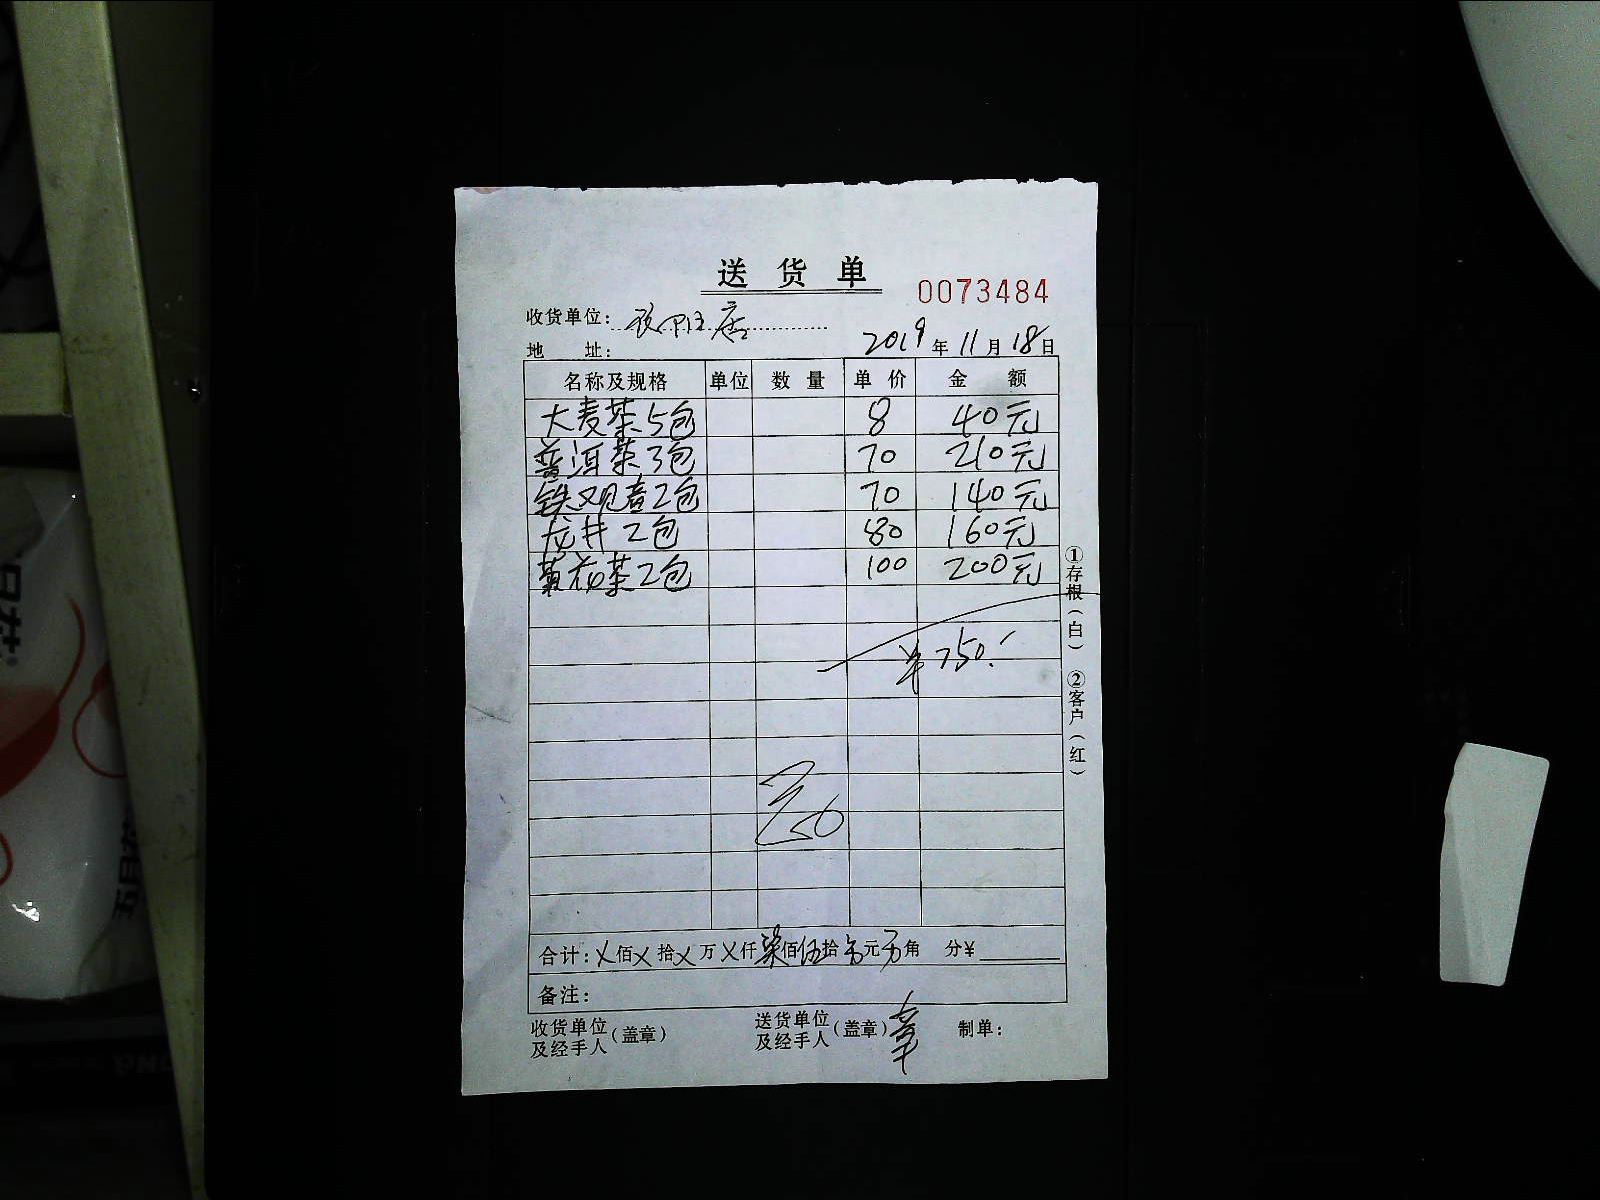 送货单
0073484
收货单位: 店
地 址: 2019年11月18日
名称及规格 单位 数量 单价 金额
大麦茶5包 8 40元
普洱茶3包 70 210元
铁观音2包 70 140元
龙井2包 80 160元
菊花茶2包 100 200元
¥750.
合计:乂佰乂拾乂万乂仟柒佰伍拾 元 角 分¥
备注:
收货单位及经手人(盖章) 送货单位及经手人(盖章) 章 制单:
①存根(白) ②客户(红)